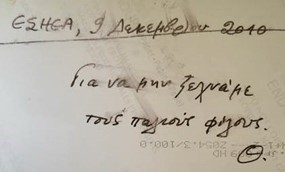 ΕΣΗΕΑ, 9 Δεκεμβρίου 2010
Για να μην ξεχνάμε
τους παλιούς φίλους.